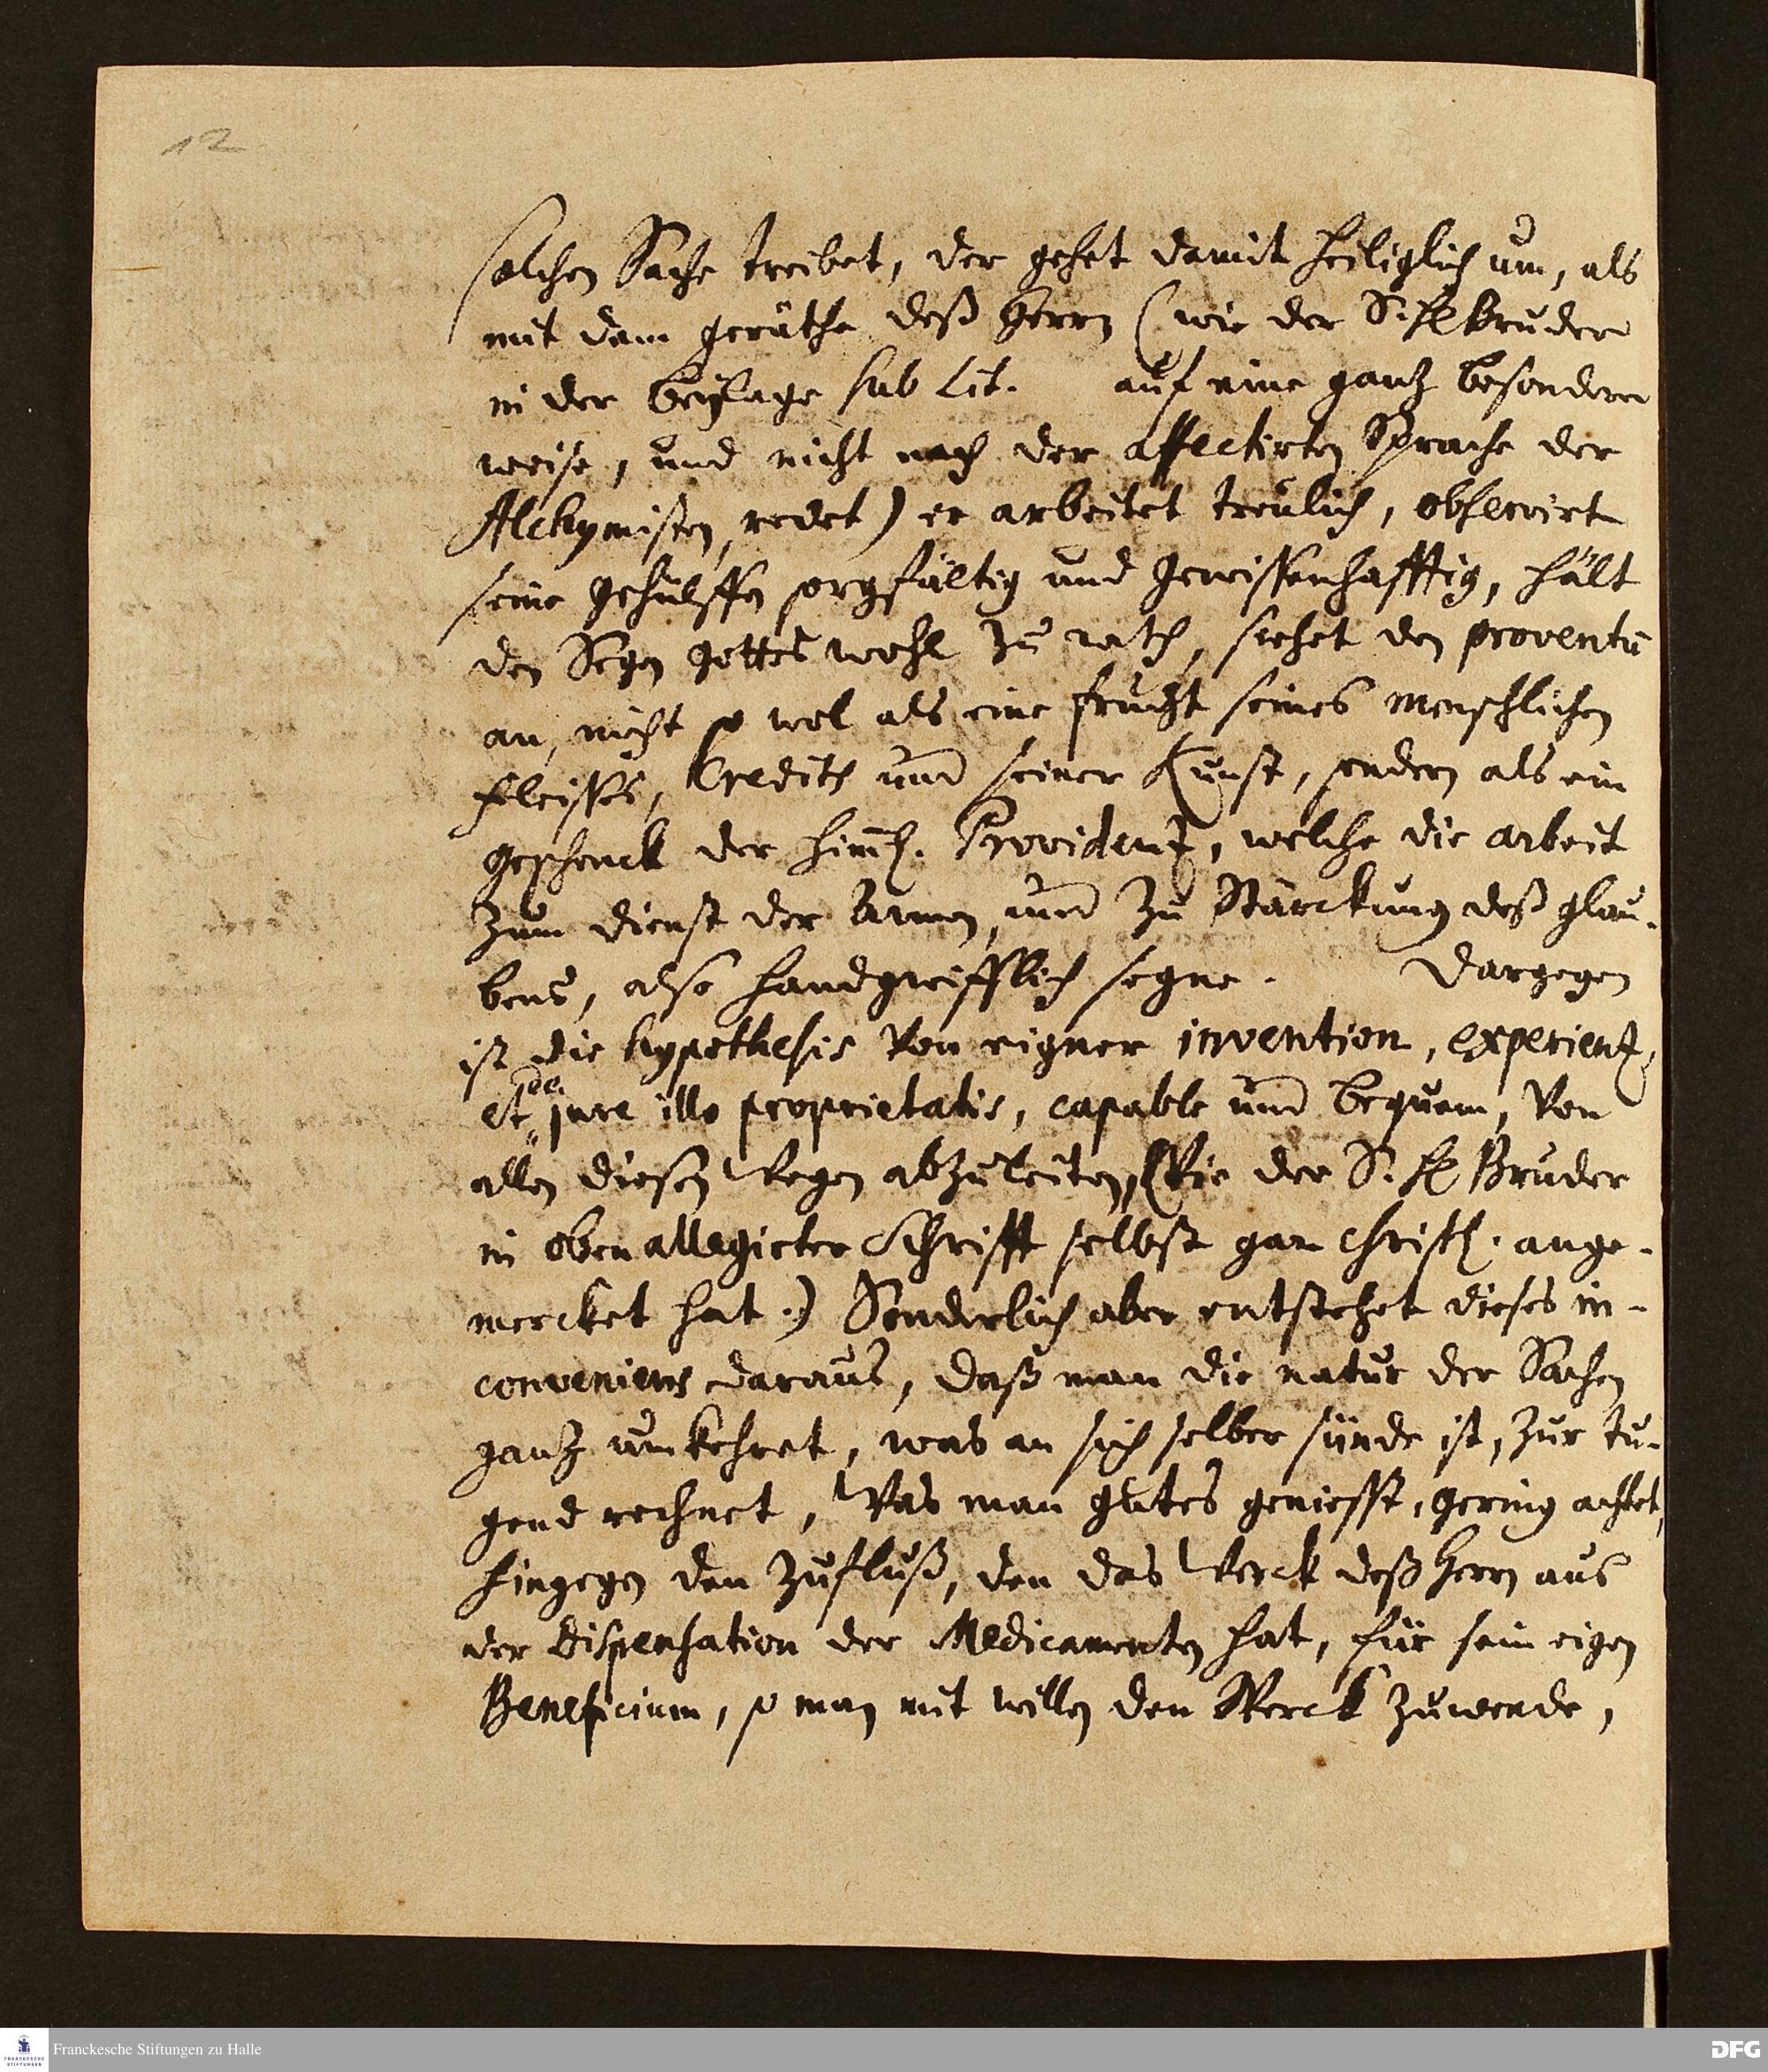 12
solchen Sache treibet, der gehet damit heiliglich um, als
mit dem geräthe deß Herrn (wie der S. H. Bruder
in der beylage sub Lit. auf eine gantz besondere
weise, und nicht nach der affectirten Sprache der
Alchymisten, redet) er arbeitet treulich, observirt
seine gehülffen sorgfältig und gewissenhafftig, hält
den Segen Gottes wohl zu rath, siehet den proventū
an, nicht so wol als eine frucht seines menschlichen
fleisses, Credits und seiner Kunst, sondern als ein
geschenck der himl. Providentz, welche die arbeit
zum dienst der Armen, und zu Stärckung deß glau-
bens, also handgreifflich segne. Dargegen
ist die hypothesis von eigner invention, experientz,
et de jure illo proprietatis, capable und bequem, von
allen diesen Wegen abzuleiten, (Wie der S. H. Bruder
in oben allegirter Schrifft selbst gar christl. ange-
mercket hat.) Sonderlich aber entstehet dieses in-
conveniens daraus, daß man die natur der Sachen
gantz umkehret, was an sich selber sünde ist, zur tu-
gend rechnet, Was man gutes geniesst, gering achtet,
hingegen den Zufluß, den das Werck deß Herrn aus
der dispensation der Medicamenten hat, für sein eigen
Beneficium, so man mit willen den Werck zuwende,
Franckesche Stiftungen zu Halle
DFG
FRANCKESCHE
STIFTUNGEN